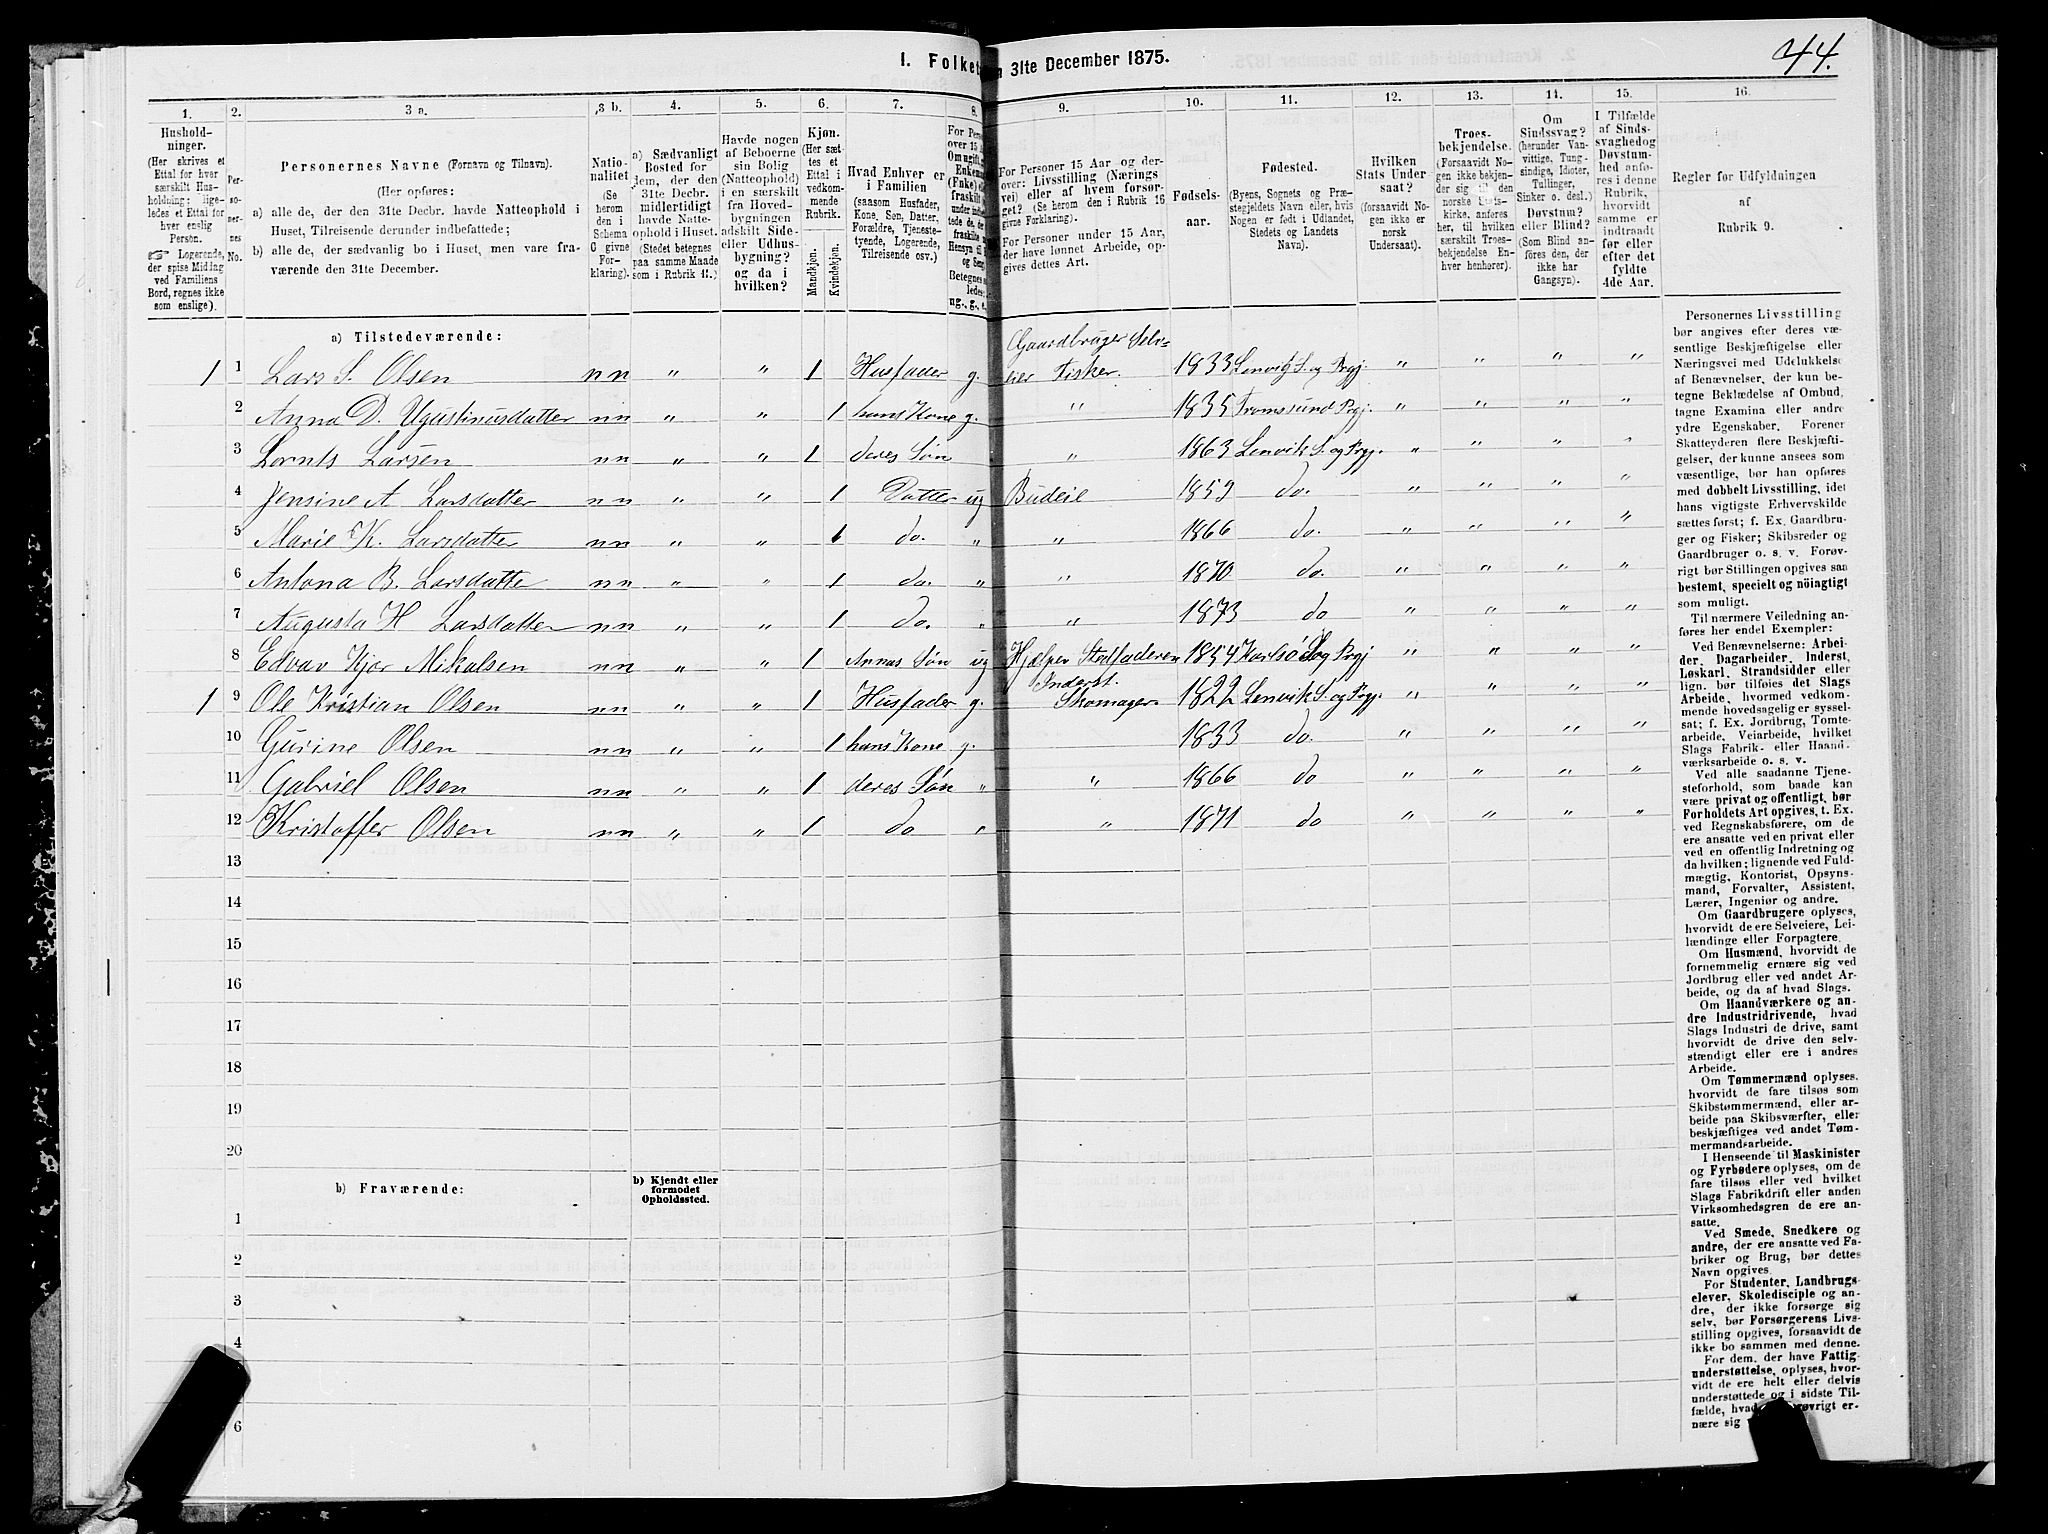 44.
I. Folket
n 31te December 1875.
1. 2. 3 a. 3 b. 4. 5. 6. 7. 8. 9. 10. 11. 12. 13. 14. 15. 16.
Hushold-
ninger.
(Her skrives et
Ettal for hver
særskilt Hus-
holdning; lige-
ledes et Ettal for
hver enslig
Person.
☞ Logerende,
der spise Middag
ved Familiens
Bord, regnes ikke
som enslige).
Per-
so-
ner-
nes
No.
Personernes Navne (Fornavn og Tilnavn).
(Her opføres:
a) alle de, der den 31te Decbr. havde Natteophold i
Huset, Tilreisende derunder indbefattede;
b) alle de, der sædvanlig bo i Huset, men vare fra-
værende den 31te December.
Natio-
nalitet
(Se
herom
den i
Schema
C givne
For-
klaring).
a) Sædvanligt
Bosted for
dem, der den
31te Decbr.
midlertidigt
havde Natte-
ophold i Huset.
(Stedet betegnes
paa samme Maade
som i Rubrik 11.)
Havde nogen
af Beboerne
sin Bolig
(Natteophold)
i en særskilt
fra Hoved-
bygningen
adskilt Side-
eller Udhus-
bygning?
og da i
hvilken?
Kjøn.
(Her sæt-
tes et
Ettal i
vedkom-
mende
Rubrik.
Mandkjøn.
Kvindekjøn.
Hvad Enhver er
i Familien
(saasom Husfader,
Kone, Søn, Datter,
Forældre, Tjeneste-
tyende, Logerende,
Tilreisende osv.)
For Personer 15 Aar og der-
over: Livsstilling (Nærings
vei) eller af hvem forsør-
get? (Se herom den i Rubrik 16
givne Forklaring).
For Personer under 15 Aar,
der have lønnet Arbeide, op-
gives dettes Art.
Fødsels-
aar.
Fødested.
(Byens, Sognets og Præ-
stegjeldets Navn eller, hvis
Nogen er født i Udlandet,
Stedets og Landets
Navn).
Hvilken
Stats Under
saat?
(forsaavidt No-
gen ikke er
norsk
Undersaat).
Troes-
bekjendelse.
(Forsaavidt No-
gen ikke bekjen-
der sig til den
norske Stats-
kirke, anføres
her, til hvilken
særskilt Troes-
bekjendelse En-
hver henhører).
Om
Sindssvag?
(herunder Van-
vittige, Tung-
sindige, Idioter,
Tullinger,
Sinker o. desl.)
Døvstum?
eller Blind?
(Som Blind an-
føres den, der
ikke har
Gangsyn).
I Tilfælde
af Sinds-
svaghedog
Døvstum-
hed anfø-
res i denne
Rubrik,
hvorvidt
samme er
indtraadt
før eller
efter det
fyldte
4de Aar.
Regler for Udfyldningen
af
Rubrik 9.
a) Tilstedeværende:
1 1 Lars S. Olsen nn " " 1 Husfader g. Gaardbruger Selv-
eier Fisker. 1833 Lenvik S. og Prgj. " " " "
2 Anna D. Ugustinusdatter nn " " 1 hans Kone g. " 1835 Tromssund Prgj. " " " "
3 Lornts Larsen nn " " 1 deres Søn " 1863 Lenvik S. og Prgj. " " " "
4 Jensine A Larsdatter nn " " 1 Datter ug Budeie 1859 do. " " " "
5 Marie K. Larsdatter nn " " 1 do. " " 1866 do. " " " "
6 Antona B. Larsdatte nn " " 1 do. " " 1870 do. " " " "
7 Augusta H Larsdatter nn " " 1 do. " " 1873 do " " " "
8 Edvav Kjør Mikalsen nn " " 1 Annas Søn ug Hjælper Stedfaderen 1854 Karlsö Sog Prgj " " " "
1 9 Ole Kristian Olsen nn " " 1 Husfader g. Inderst.
Skomager 1822 Lenvik S. og Prgj. " " " "
10 Gurine Olsen nn " " 1 hans Kone g. 1833 do. " " " "
11 Gabriel Olsen nn " " 1 deres Søn " " 1866 do " " " "
12 Kristoffer Olsen nn " " 1 do " " 1871 do " " " "
13
14
15
16
17
18
19
20
b) Fraværende:
b) Kjendt eller
formodet
Opholdssted.
1
2
3
4
6
Personernes Livsstilling
bør angives efter deres væ-
sentlige Beskjæftigelse eller
Næringsvei med Udelukkelse
af Benævnelser, der kun be-
tegne Beklædelse af Ombud,
tagne Examina eller andre
ydre Egenskaber. Forener
Skatteyderen flere Beskjæfti-
gelser, der kunne ansees som
væsentlige, bør han opføres
med dobbelt Livsstilling, idet
hans vigtigste Erhvervskilde
sættes først; f. Ex. Gaardbru-
ger og Fisker; Skibsreder og
Gaardbruger o. s. v. Forøv-
rigt bør Stillingen opgives saa
bestemt, specielt og nöiagtigt
som muligt.
Til nærmere Veiledning an-
føres her endel Exempler:
Ved Benævnelserne: Arbei-
der, Dagarbeider, Inderst,
Løskarl, Strandsidder eller
lign. bør tilføies det Slags
Arbeide, hvormed vedkom-
mende hovedsagelig er syssel-
sat; f. Ex. Jordbrug, Tomte-
arbeide, Veiarbeide, hvilket
Slags Fabrik- eller Haand-
værksarbeide o. s. v.
Ved alle saadanne Tjene-
steforhold, som baade kan
være privat og offentligt, bør
Forholdets Art opgives, t. Ex.
ved Regnskabsførere, om de
ere ansatte ved en privat eller
ved en offentlig Indretning og
da hvilken; lignende ved Fuld-
mægtig, Kontorist, Opsyns-
mand, Forvalter, Assistent,
Lærer, Ingeniør og andre.
Om Gaardbrugere oplyses,
hvorvidt de ere Selveiere, Lei-
lændinge eller Forpagtere.
Om Husmænd, hvorvidt de
fornemmelig ernære sig ved
Jordbrug eller ved andet Ar-
beide, og da af hvad Slags.
Om Haandværkere og an-
dre Industridrivende, hvad
Slags Industri de drive, samt
hvorvidt de drive den selv-
stændigt eller ere i andres
Arbeide.
Om Tømmermænd oplyses,
hvorvidt de fare tilsøs som
Skibstømmermænd, eller ar-
beide paa Skibsværfter, eller
beskjæftiges ved andet Tøm-
mermandsarbeide.
I Henseende til Maskinister
og Fyrbødere oplyses, om de
fare tilsøs eller ved hvilket
Slags Fabrikdrift eller anden
Virksomhedsgren de ere an-
satte.
Ved Smede, Snedkere og
andre, der ere ansatte ved Fa-
briker og Brug, bør dettes
Navn opgives.
For Studenter, Landbrugs-
elever, Skoledisciple og an-
dre, der ikke forsørge sig
selv, bør Forsørgerens Livs-
stilling opgives, forsaavidt de
ikke bo sammen med denne.
For dem, der have Fattig-
understøttelse, oplyses, hvor-
vidt de ere helt eller delvis
understøttede og i sidste Til-
fælde, hvad øvrigt er-
nære sig